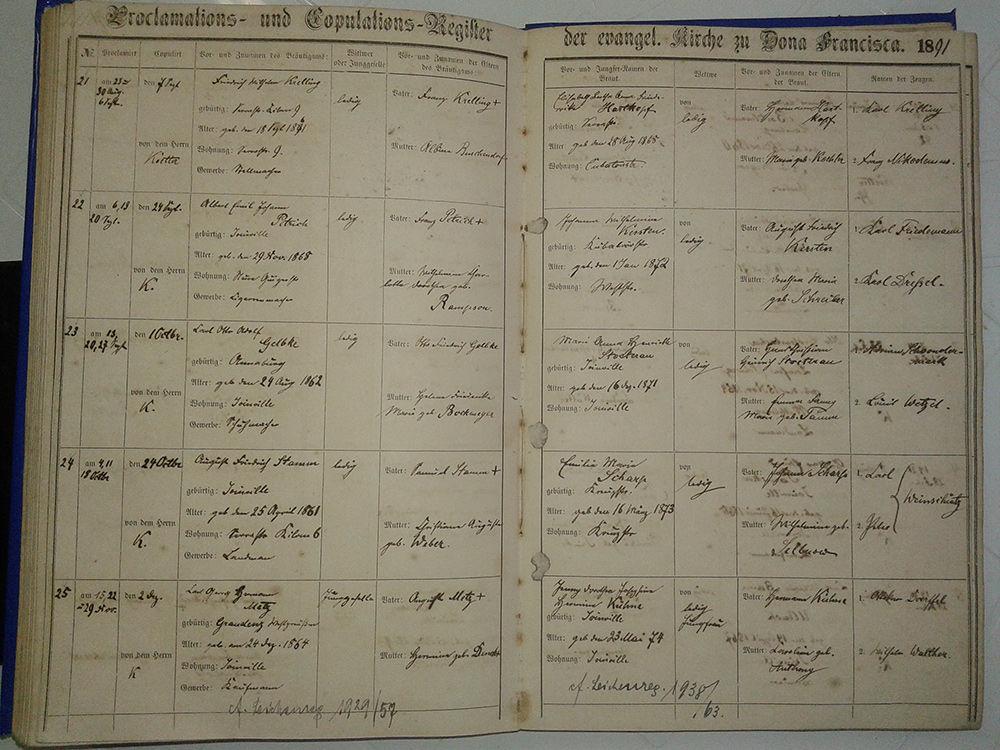 Proclamations- und Copulations-Register der evangel. Kirche zu Dona Francisca. 1891
№ Proclamirt Copulirt Vor- und Zunamen des Bräutigams: Wittwer oder Junggeselle Vor- und Zunamen der Eltern des Bräutigams:
Vor- und Jungfer-Namen der Braut. Wittwe Vor- und Zunamen der Eltern der Braut. Namen der Zeugen.
21 am 23 30 Aug. 6 Sept. den 7 Sept
Friedrich Wilhelm Krelling
ledig
Vater: Franz Krelling +
gebürtig:
Alter: geb. den 18 Sept
von dem Herrn
Wohnung: 9.
Gewerbe: Stellmacher
Mutter: Albine
Hartkopf
von ledig
Vater: Hermann Hartkopf
1. Karl Krelling
gebürtig:
Alter geb den 28 Aug 1868
Wohnung: Cubatonstr
Mutter: Maria geb. Koehler
2. Franz Nikodemus.
22 am 6, 13 20 Sept. den 24 Sept.
Albert Emil Johann
Petrich
ledig
Vater: Franz Petrich +
gebürtig: Joinville
Alter: geb. den 29 Nov. 1868
von dem Herrn K.
Wohnung:
Gewerbe: Cigarrenmacher
Mutter: Wilhelmine Charlotte Dorothea geb.
Rampson.
Johanna Wilhelmine
Kersten.
von ledig
Vater: August Friedrich
Kersten
1. Karl Friedemann
gebürtig:
Alter: geb. den 1 Jan 1872
Wohnung: Weststr.
Mutter: Dorothea Maria
geb. Schreiber
2. Karl Dreßel.
23 am 13, 20, 27 Sept. den 1 Octbr.
Carl Otto Adolf
Gelbke
ledig
Vater: Otto Friedrich Gelbke
gebürtig: Annaburg
Alter: geb den 29 Aug 1862
von dem Herrn K.
Wohnung: Joinville
Gewerbe: Schuhmacher
Mutter: Helene Friederike
Marie geb Bockmeyer
Marie Anna Henriette
Stockrau
von ledig
Vater:
Heinrich Stockrau
1.
gebürtig: Joinville
Alter: geb den 16 Dez. 1871
Wohnung: Joinville
Mutter: Emma Fanny
Marie geb. Tamm
2. Louis Wetzel.
24 am 4, 11 18 Octbr den 24 Octbr
August Friedrich Stamm
ledig
Vater: Samuel Stamm +
gebürtig: Joinville
Alter: geb den 25 April 1861
von dem Herrn K.
Wohnung: Kilom 6
Gewerbe: Landman
Mutter: Christiane Auguste
geb. Weber.
Emilie Marie
Scharf
von ledig
Vater: Johann Scharf
1. Karl
Weinschütz
gebürtig: Kreuzstr.
Alter: geb den 16 März 1873
Wohnung: Kreuzstr
Mutter: Wilhelmine geb.
Sellnow
2.
25 am 15, 22 29 Nov. den 2 Dez.
Carl Georg Hermann
Metz
Junggeselle
Vater: August Metz +
gebürtig: Graudenz Westpreußen
Alter: geb. am 24 Dez. 1864
von dem Herrn K
Wohnung: Joinville
Gewerbe: Kaufmann
Mutter: Hermine geb.
Jenny Dorothea Josephine
Hermine Kühne
von ledig
Jungfrau
Vater: Hermann Kühne
1. Dörffel
gebürtig: Joinville
Alter: geb den 23 Mai 74
Wohnung: Joinville
Mutter: Caroline geb.
Anthony
2. Wilhelm Walther.
cf. Leichenreg 1929/57
cf. Leichenreg. 1938/
63.